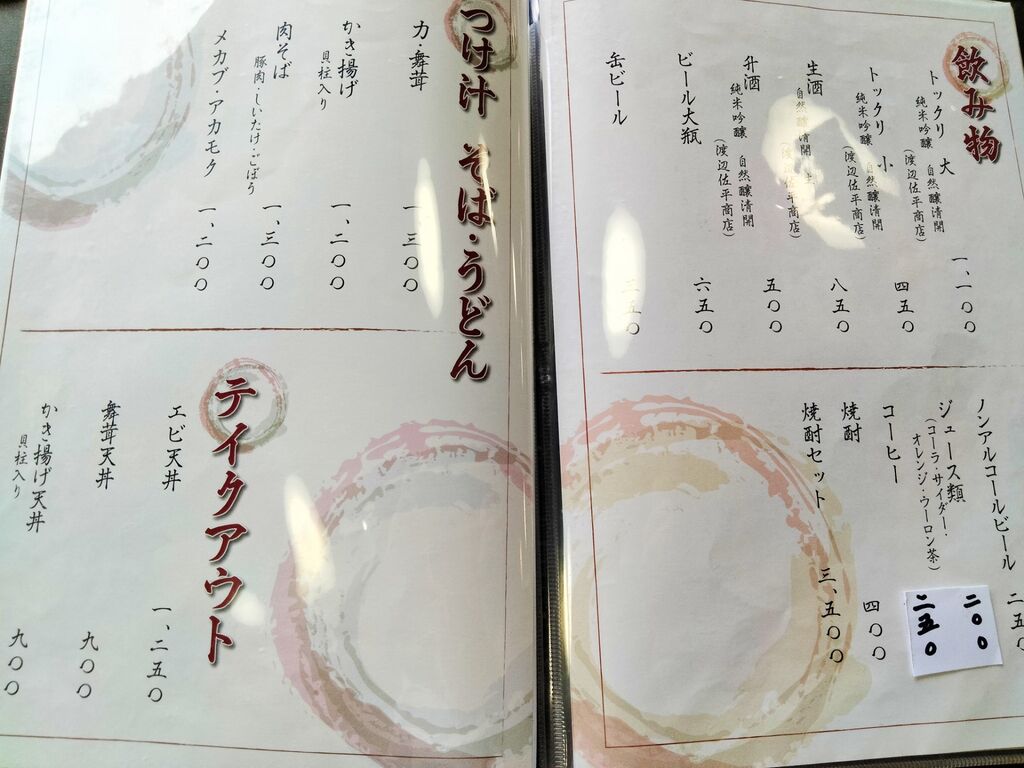 飲み物
トックリ 大
純米吟醸 自然醸清開
(渡辺佐平商店)
一、一〇〇
トックリ 小
純米吟醸 自然醸清開
(渡辺佐平商店)
四五〇
生酒
自然醸清開 生
(渡辺佐平商店)
八五〇
升酒
純米吟醸 自然醸清開
(渡辺佐平商店)
五〇〇
ビール大瓶
六五〇
缶ビール
三五〇
ノンアルコールビール
二五〇
ジュース類
(コーラ・サイダー・
オレンジ・ウーロン茶)
二〇〇
コーヒー
二五〇
焼酎
四〇〇
焼酎セット
三、五〇〇
つけ汁 そば・うどん
力・舞茸
一、三〇〇
かき揚げ
貝柱入り
一、二〇〇
肉そば
豚肉・しいたけ・ごぼう
一、三〇〇
メカブ・アカモク
一、二〇〇
テイクアウト
エビ天丼
一、二五〇
舞茸天丼
九〇〇
かき揚げ天丼
貝柱入り
九〇〇